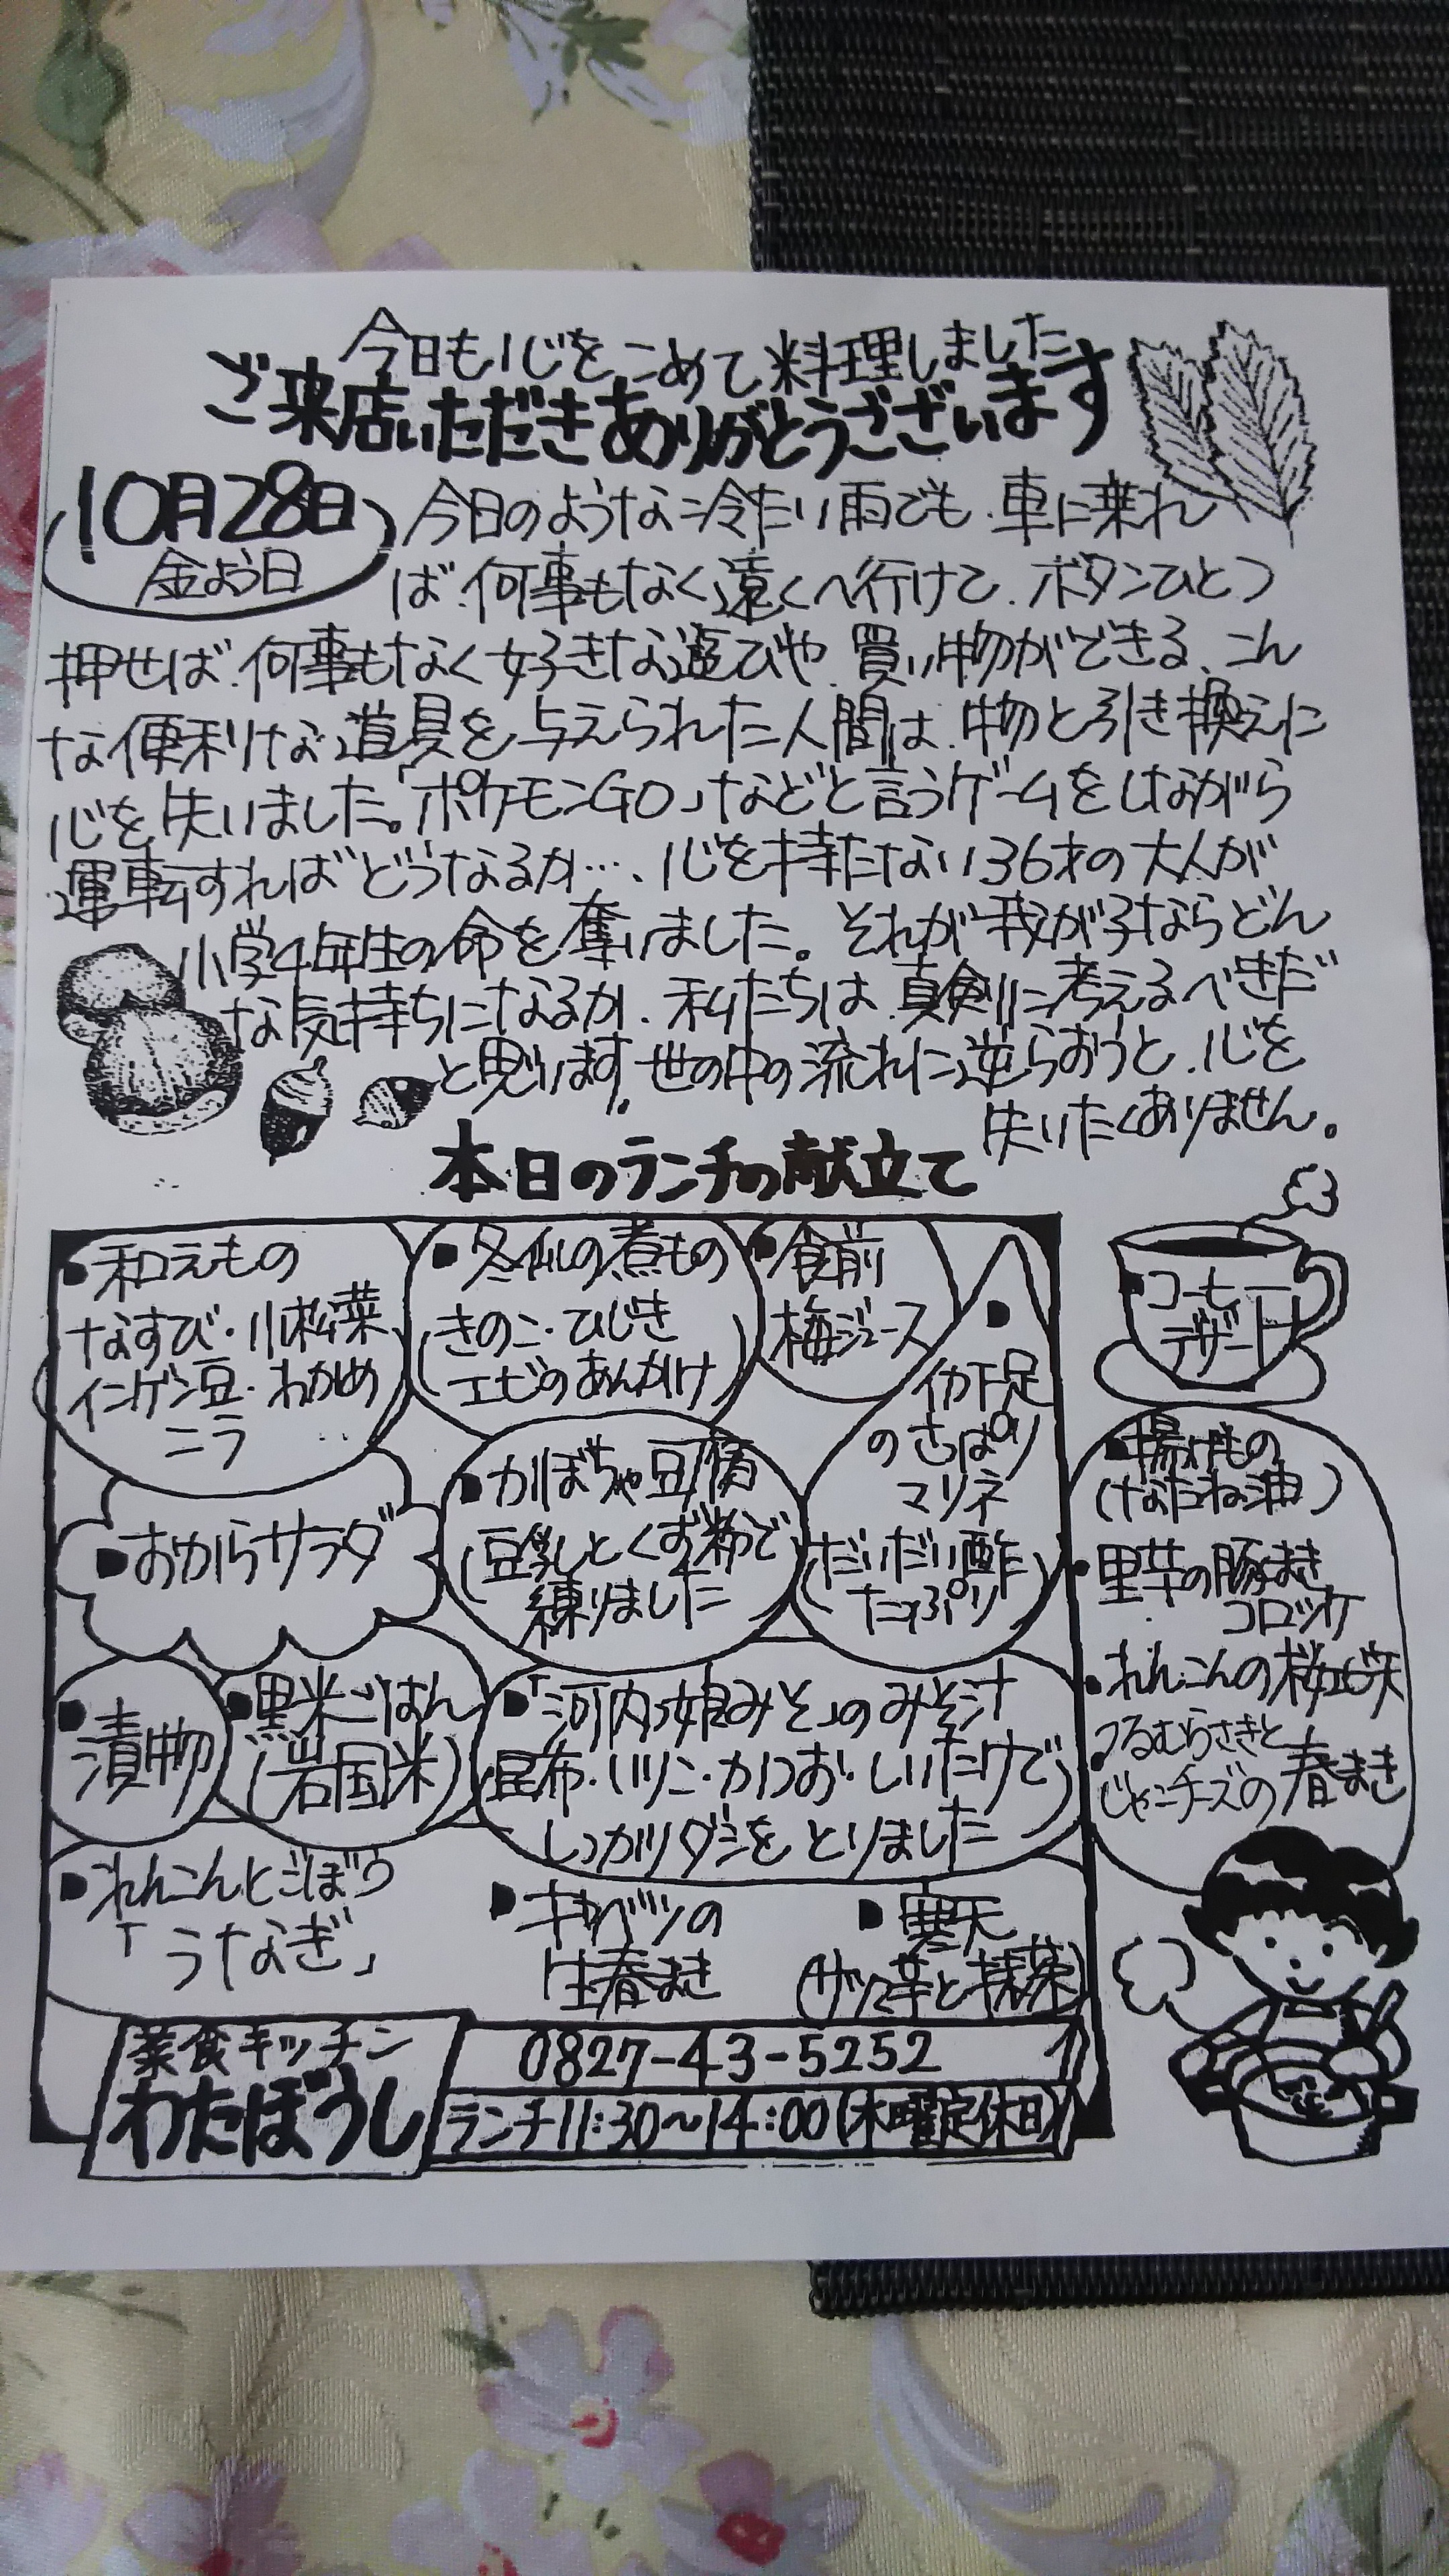 今日も心をこめて料理しました
ご来店いただきありがとうございます
10月28日
金よう日
今日のような冷たい雨でも、車に乗れ
ば、何事もなく遠くへ行けて、ボタンひとつ
押せば、何事もなく好きな遊びや、買い物ができる、こん
な便利な道具を与えられた人間は、物と引き換えに
心を失いました。「ポケモンGO」などと言うゲームをしながら
運転すればどうなるか…、心を持たない36才の大人が
小学4年生の命を奪いました。それが我が子ならどん
な気持ちになるか、私たちは、真剣に考えるべきだ
と思います。世の中の流れに逆らおうと、心を
失いたくありません。
本日のランチの献立て
・和えもの
なすび・小松菜
インゲン豆・わかめ
ニラ
・冬仙の煮もの
(きのこ・ひじき
エビのあんかけ)
・食前
梅ジュース
・
イカ下足
のさっぱり
マリネ
(だいだい酢
たっぷり)
・コーヒー
デザート
・おからサラダ
・かぼちゃ豆腐
(豆乳とくず粉で
練りました)
・揚げもの
(なたね油)
・里芋の豚まき
コロッケ
・れんこんの桜エビ天
・つるむらさきと
じゃこチーズの春まき
・漬物
・黒米ごはん
(岩国米)
・「河内娘みそ」のみそ汁
(昆布・イリコ・かつお・しいたけで)
しっかりダシをとりました
・れんこんとごぼう
「うなぎ」
・キャベツの
生春まき
・寒天
菜食キッチン
わたぼうし
0827-43-5252
ランチ11:30〜14:00(木曜定休日)